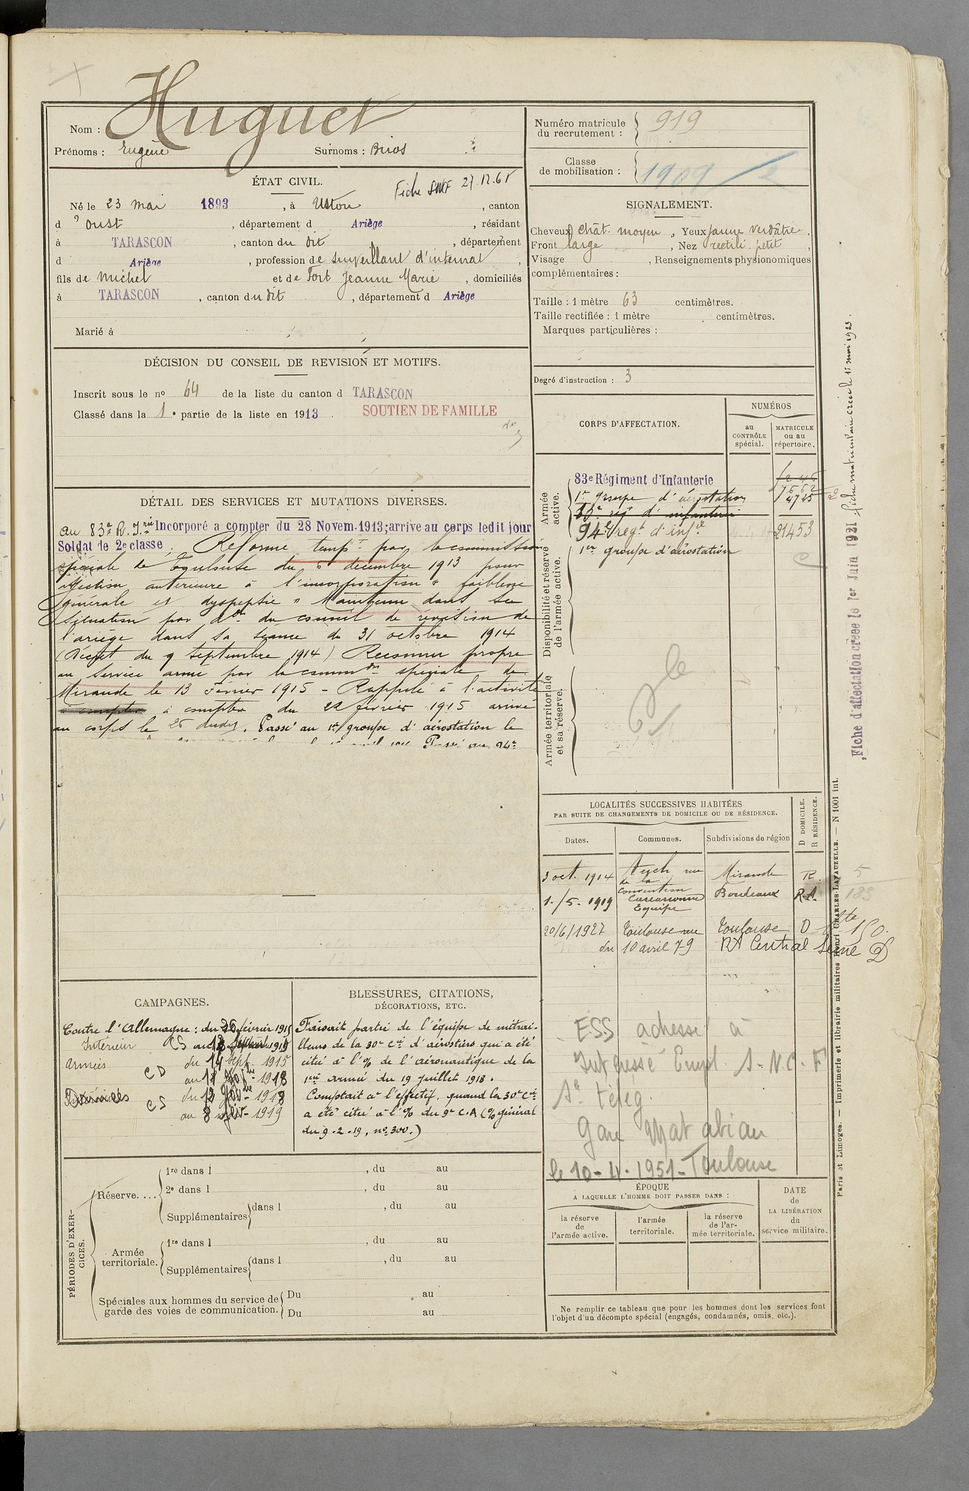 Huguet
Nom :
Prénoms : Eugène Surnoms : Brios
ÉTAT CIVIL.
Fiche SMF 27.12.65
Né le 23 mai 1893, à Ustou, canton
d'Oust, département d Ariège, résidant
à TARASCON, canton du dit, département
d Ariège, profession de surveillant d'internat,
fils de Michel et de Fort Jeanne Marie, domiciliés
à TARASCON, canton du dit, département d Ariège
Marié à
DÉCISION DU CONSEIL DE REVISION ET MOTIFS.
Inscrit sous le no 64 de la liste du canton d TARASCON
Classé dans la 1e partie de la liste en 1913. SOUTIEN DE FAMILLE
DÉTAIL DES SERVICES ET MUTATIONS DIVERSES.
Au 83e R. Irie Incorporé à compter du 28 Novem. 1913; arrive au corps ledit jour
Soldat de 2e classe. Réformé tempre par la commission
spéciale de Toulouse du 6 décembre 1913 pour
affection antérieure à l'incorporation "faiblesse
générale et dyspepsie" Maintenu dans sa
situation par don du conseil de révision de
l'ariège dans sa séance du 31 octobre 1914
(Décret du 9 septembre 1914) Reconnu propre
au service armé par la common spéciale de
Mirande le 13 Février 1915 - Rappelé à l'activité
à compter du 22 février 1915 arrivé
au corps le 25 dudit. Passé au 1er groupe d'aérostation le
Passé au 94e
CAMPAGNES.
Contre l'Allemagne : du 26 février 1915
Intérieur CS au
Armées CD du 14 Sept. 1915
au 11 Nov. 1918
CS du 12 Nov. 1918
au 8 sept. 1919
BLESSURES, CITATIONS,
DÉCORATIONS, ETC.
Faisait partie de l'équipe de mitrail-
leurs de la 30e Cie d'aérostiers qui a été
citée à l'% de l'aéronautique de la
1ère armée du 19 juillet 1918.
Comptait à l'effectif, quand la 30e Cie
a été citée à l'% du 9e C.A. (% général
du 9-2-19, no 300.)
PÉRIODES D'EXER-
CICES.
Réserve....
1re dans l , du au
2e dans l , du au
Supplémentaires dans l , du au
Armée
territoriale.
1re dans l , du au
Supplémentaires dans l , du au
Spéciales aux hommes du service de
garde des voies de communication.
Du au
Du au
Numéro matricule
du recrutement : 919
Classe
de mobilisation : 1909
SIGNALEMENT.
Cheveux chât. moyen, Yeux jaune verdâtre,
Front large, Nez rectil. petit,
Visage , Renseignements physionomiques
complémentaires :
Taille : 1 mètre 63 centimètres.
Taille rectifiée : 1 mètre centimètres.
Marques particulières :
Degré d'instruction : 3
CORPS D'AFFECTATION.
NUMÉROS
au
CONTRÔLE
spécial.
MATRICULE
ou au
répertoire.
Armée
active.
83e Régiment d'Infanterie
1er groupe d'aérostation
94e régt d'infie 21453
Disponibilité et réserve
de l'armée active.
1er groupe d'aérostation
Armée territoriale
et sa réserve.
LOCALITÉS SUCCESSIVES HABITÉES
PAR SUITE DE CHANGEMENTS DE DOMICILE OU DE RÉSIDENCE.
Dates. Communes. Subdivisions de région
D DOMICILE.
R RÉSIDENCE.
3 oct. 1914 Auch rue Mirande R.
de la
Convention
1-/5-1919 Bordeaux RA.
20/6/1927 Toulouse rue Toulouse D
du 10 avril 79 RA Central Seine D
ESS adressé à
Intéressé Empl. S.N.C.F
Sce téleg.
Gare Matabiau
le 10-4-1951- Toulouse
ÉPOQUE
A LAQUELLE L'HOMME DOIT PASSER DANS :
la réserve
de
l'armée active.
l'armée
territoriale.
la réserve
de l'ar-
mée territoriale.
DATE
de
LA LIBÉRATION
du
service militaire.
Ne remplir ce tableau que pour les hommes dont les services font
l'objet d'un décompte spécial (engagés, condamnés, omis, etc.).
Fiche d'affectation créée le 1er Juin 1921 fiche matriculaire créée le 11 mai 1923.
Paris et Limoges. — Imprimerie et librairie militaires Henri CHARLES-LAVAUZELLE. — N 1001 int.